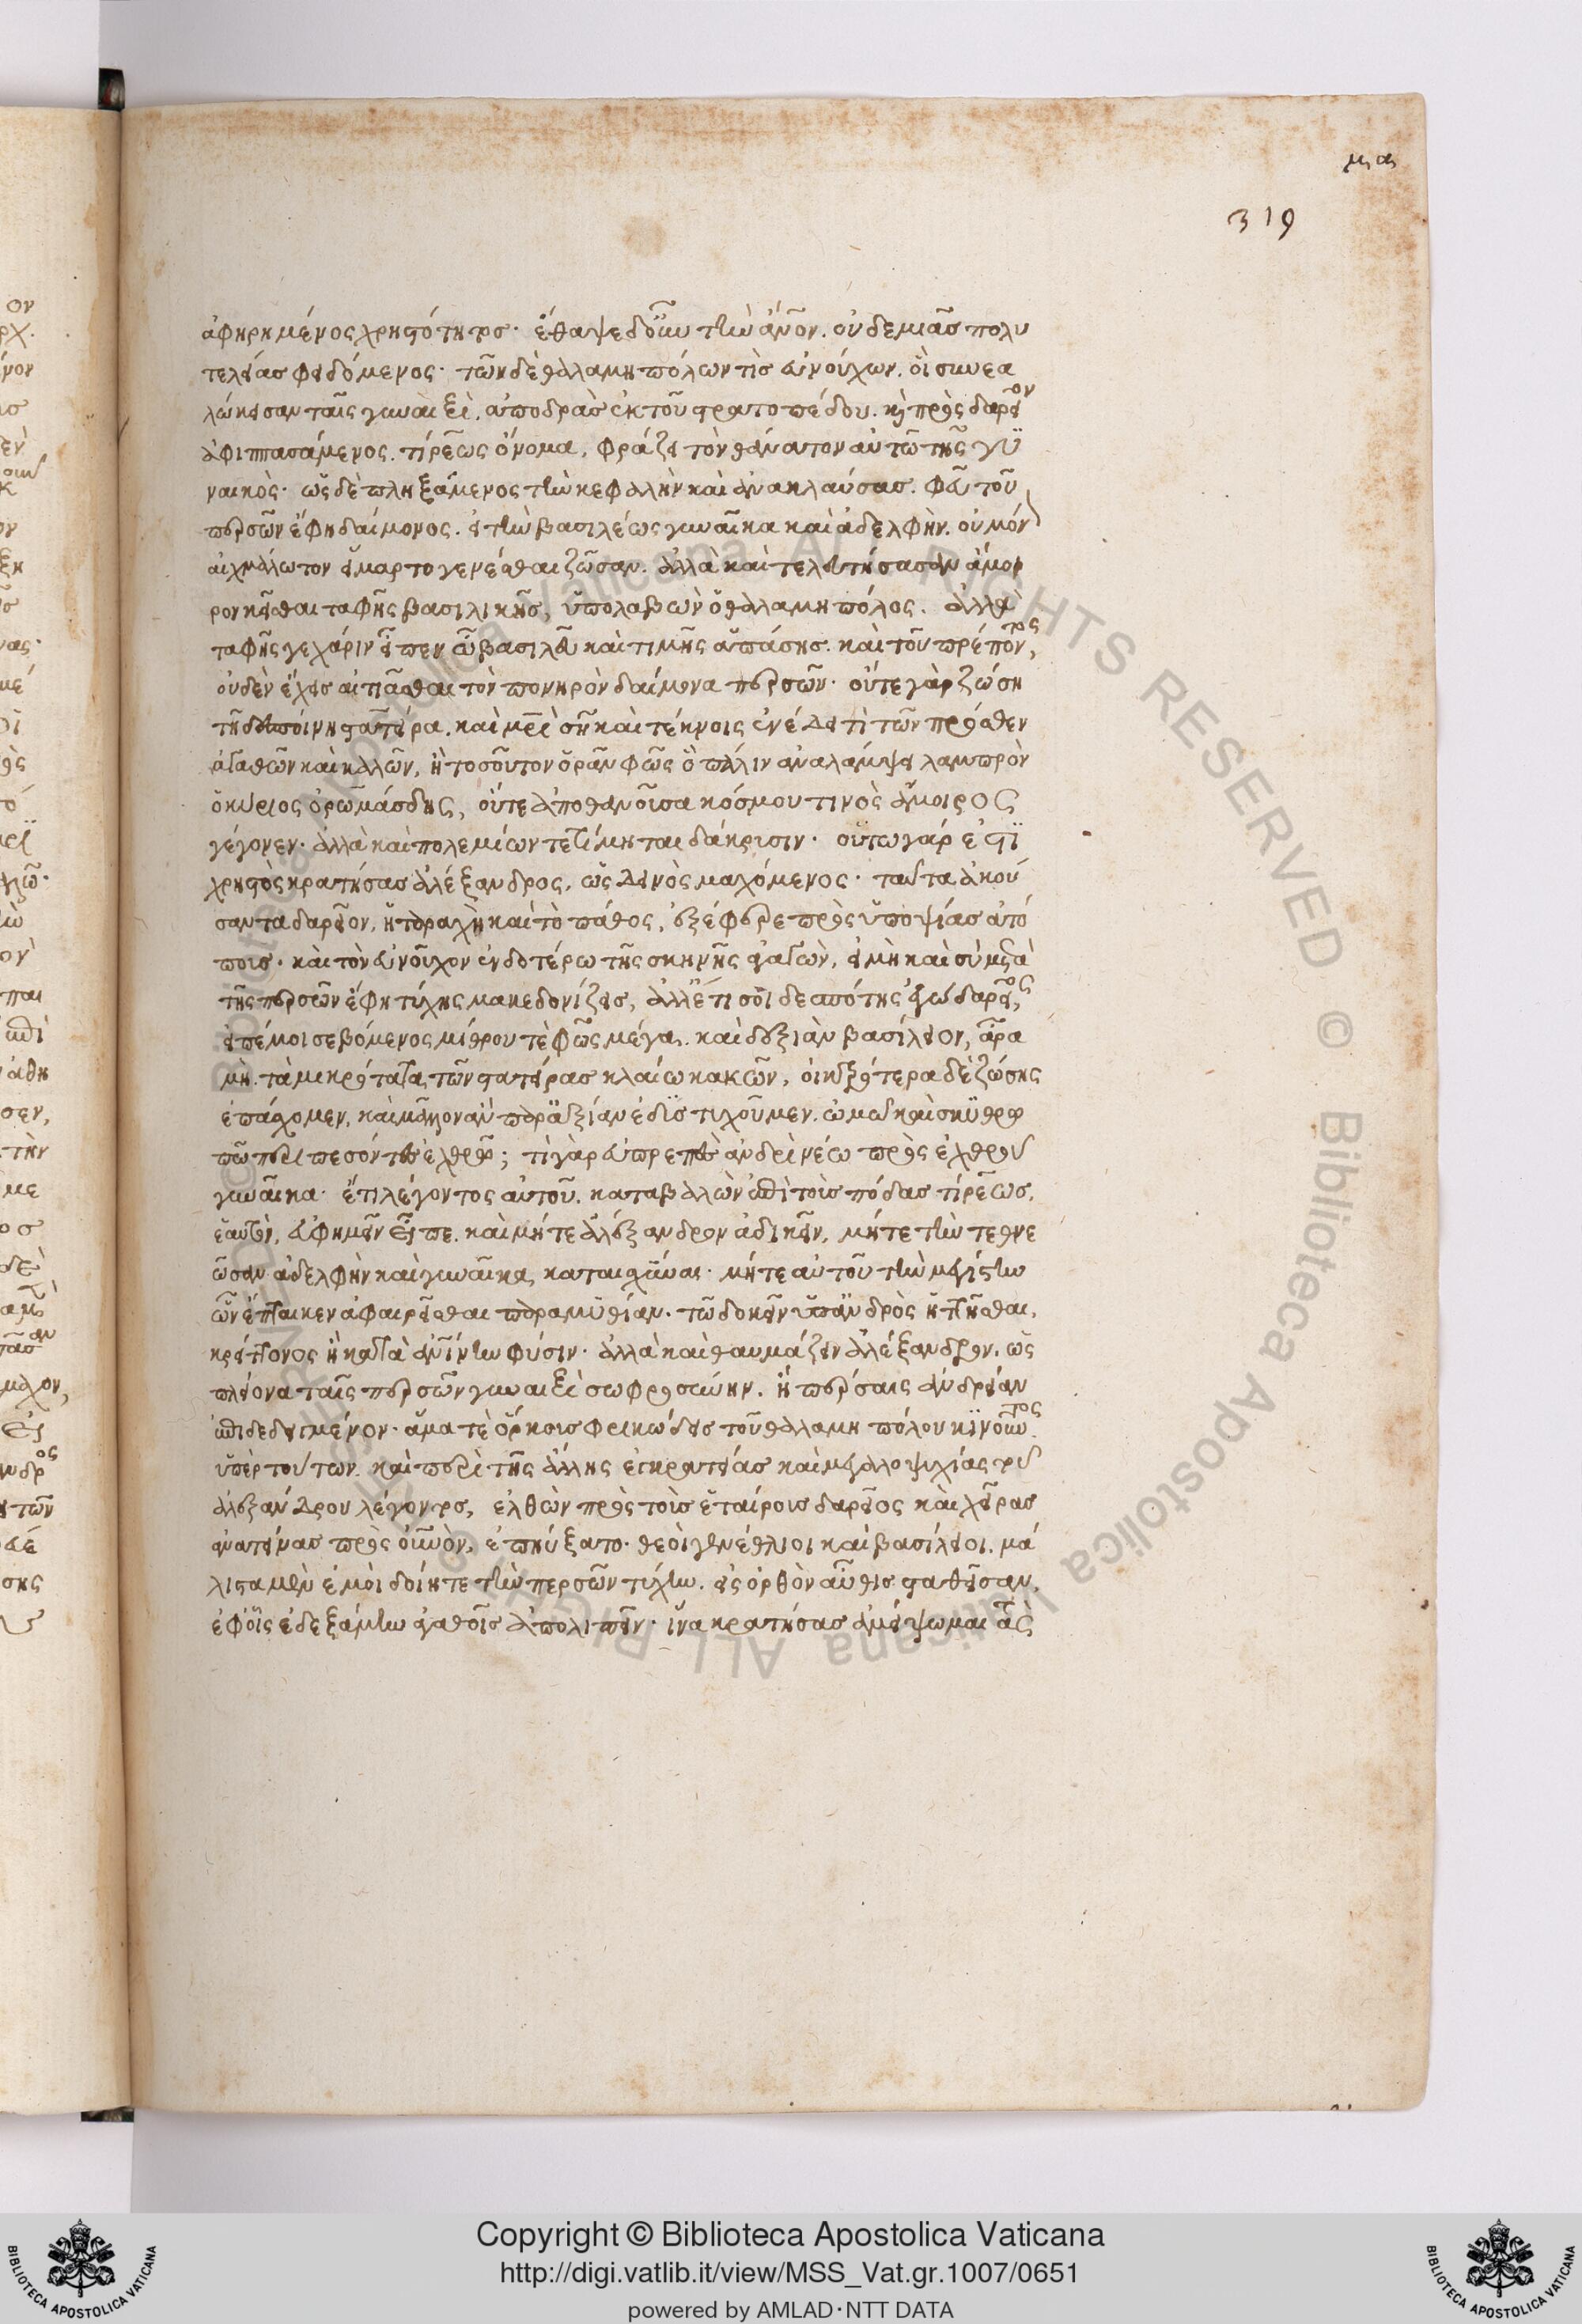 μϛα
319
ἀφῃρημένος χρηστότητος· ἔθαψεν οὖν τὴν ἄνον. οὐδεμιᾶς πολυ
τελείας φειδόμενος· τῶν δὲ θαλαμηπόλων τὶς εὐνούχων. οἳ συνεα
λώκεισαν ταῖς γυναιξὶ. ἀποδρὰς ἐκ τοῦ στρατοπέδου. καὶ πρὸς δαρεῖον
ἀφιππασάμενος. τίρεως ὄνομα, φράζει τὸν θάνατον αὐτῶ τῆς γυ
ναικὸς· ὡς δὲ πληξάμενος τὴν κεφαλὴν καὶ ἀνακλαύσας. φεῦ τοῦ
περσῶν ἔφη δαίμονος. εἰ τὴν βασιλέως γυναῖκα καὶ ἀδελφὴν. οὐ μόνον
αἰχμάλωτον εἵμαρτο γενέσθαι ζῶσαν. ἀλλὰ καὶ τελευτήσασαν ἄμοι
ρον κεῖσθαι ταφῆς βασιλικῆς, ὑπολαβὼν ὁ θαλαμηπόλος. ἀλλὰ
ταφῆς γε χάριν εἶπεν ὦ βασιλεῦ καὶ τιμῆς ἁπάσης. καὶ τοῦ πρέποντος,
οὐδὲν ἔχεις αἰτιᾶσθαι τὸν πονηρὸν δαίμονα περσῶν· οὔτε γὰρ ζώση
τῆ δεσποίνη στατείρα. καὶ μρὶ σῆ καὶ τέκνοις ἐνέδει τὶ τῶν πρόσθεν
ἀγαθῶν καὶ καλῶν, ἢ τὸ σοῦ τὸν ὁρᾶν φῶς ὃ πάλιν ἀναλάμψει λαμπρὸν
ὁ κύριος ὀρωμάσδης, οὔτε ἀποθανοῦσα κόσμου τινὸς ἄμοιρος
γέγονεν. ἀλλὰ καὶ πολεμίων τετίμηται δάκρυσιν· οὕτω γάρ ἐστι
χρηστὸς κρατήσας ἀλέξανδρος, ὡς δεινὸς μαχόμενος· ταῦτα ἀκού
σαντα δαρεῖον, ἡ ταραχὴ καὶ τὸ πάθος, ἐξέφερε πρὸς ὑποψίας ἀτό
πους· καὶ τὸν εὐνοῦχον ἐνδοτέρω τῆς σκηνῆς ἀγαγὼν, εἰ μὴ καὶ σὺ μετὰ
τῆς περσῶν ἔφη τύχης μακεδονίζεις, ἀλλ' ἔτι σοὶ δεσπότης ἐγὼ δαρεῖος,
εἰπέ μοι σεβόμενος μίθρου τὲ φῶς μέγα. καὶ δεξιὰν βασίλειον, ἆρα
μὴ τὰ μικρότατα τῶν στατείρας κλαίω κακῶν, οἰκτρότερα δὲ ζώσης
ἐπάσχομεν, καὶ μᾶλλον ἂν παρ' ἀξίαν ἐδυστυχοῦμεν. ὠμῶ καὶ σκυθρω
πῶ περιπεσόντες ἐχθρῶ; τί γὰρ εὐπρεπὲς ἀνδρὶ νέω πρὸς ἐχθροῦ
γυναῖκα· ἔτι λέγοντος αὐτοῦ. καταβαλὼν ἐπὶ τοὺς πόδας τίρεως,
ἑαυτὸν, εὐφημεῖν εἶπε. καὶ μήτε ἀλέξανδρον ἀδικεῖν, μήτε τὴν τεθνε
ῶσαν ἀδελφὴν καὶ γυναῖκα καταισχύναι· μήτε αὐτοῦ τὴν μεγίστην
ὧν ἔπταικεν ἀφαιρεῖσθαι παραμυθίαν. τῶ δοκεῖν ὑπ' ἀνδρὸς ἡττῆσθαι,
κρείττονος ἢ κατὰ ἀνίνην φύσιν· ἀλλὰ καὶ θαυμάζειν ἀλέξανδρον. ὡς
πλείονα ταῖς περσῶν γυναιξὶ σωφροσύνην. ἢ πέρσαις ἀνδρείαν
ἐπιδεδειγμένον· ἅμα τὲ ὅρκους φρικώδεις τοῦ θαλαμηπόλου κινοῦντος.
ὑπὲρ τούτων. καὶ περὶ τῆς ἄλλης ἐγκρατείας καὶ μεγαλοψυχίας τοῦ
ἀλεξάνδρου λέγοντος, ἐλθὼν πρὸς τοὺς ἑταίρους δαρεῖος καὶ χεῖρας
ἀνατείνας πρὸς οὐνὸν, ἐπηύξατο· θεοὶ γενέθλιοι καὶ βασίλειοι. μά
λιστα μὲν ἐμοὶ δοίητε τὴν περσῶν τύχην. εἰς ὀρθὸν αὖθις σταθεῖσαν,
ἐφ' οἷς ἐδεξάμην ἀγαθοῖς ἀπολιπεῖν· ἵνα κρατήσας ἀμείψωμαι ἃς
Copyright © Biblioteca Apostolica Vaticana
http://digi.vatlib.it/view/MSS_Vat.gr.1007/0651
powered by AMLAD·NTT DATA